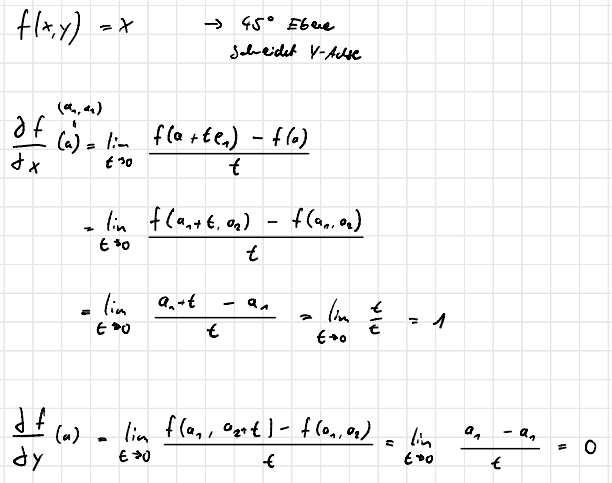 f(x,y) = x → 45° Ebene
schneidet Y-Achse
(a₁, a₂)
∂f/∂x (a) = lim t→0 (f(a + te₁) - f(a))/t
= lim t→0 (f(a₁+t, a₂) - f(a₁, a₂))/t
= lim t→0 (a₁+t - a₁)/t = lim t→0 t/t = 1
∂f/∂y (a) = lim t→0 (f(a₁, a₂+t) - f(a₁, a₂))/t = lim t→0 (a₁ - a₁)/t = 0